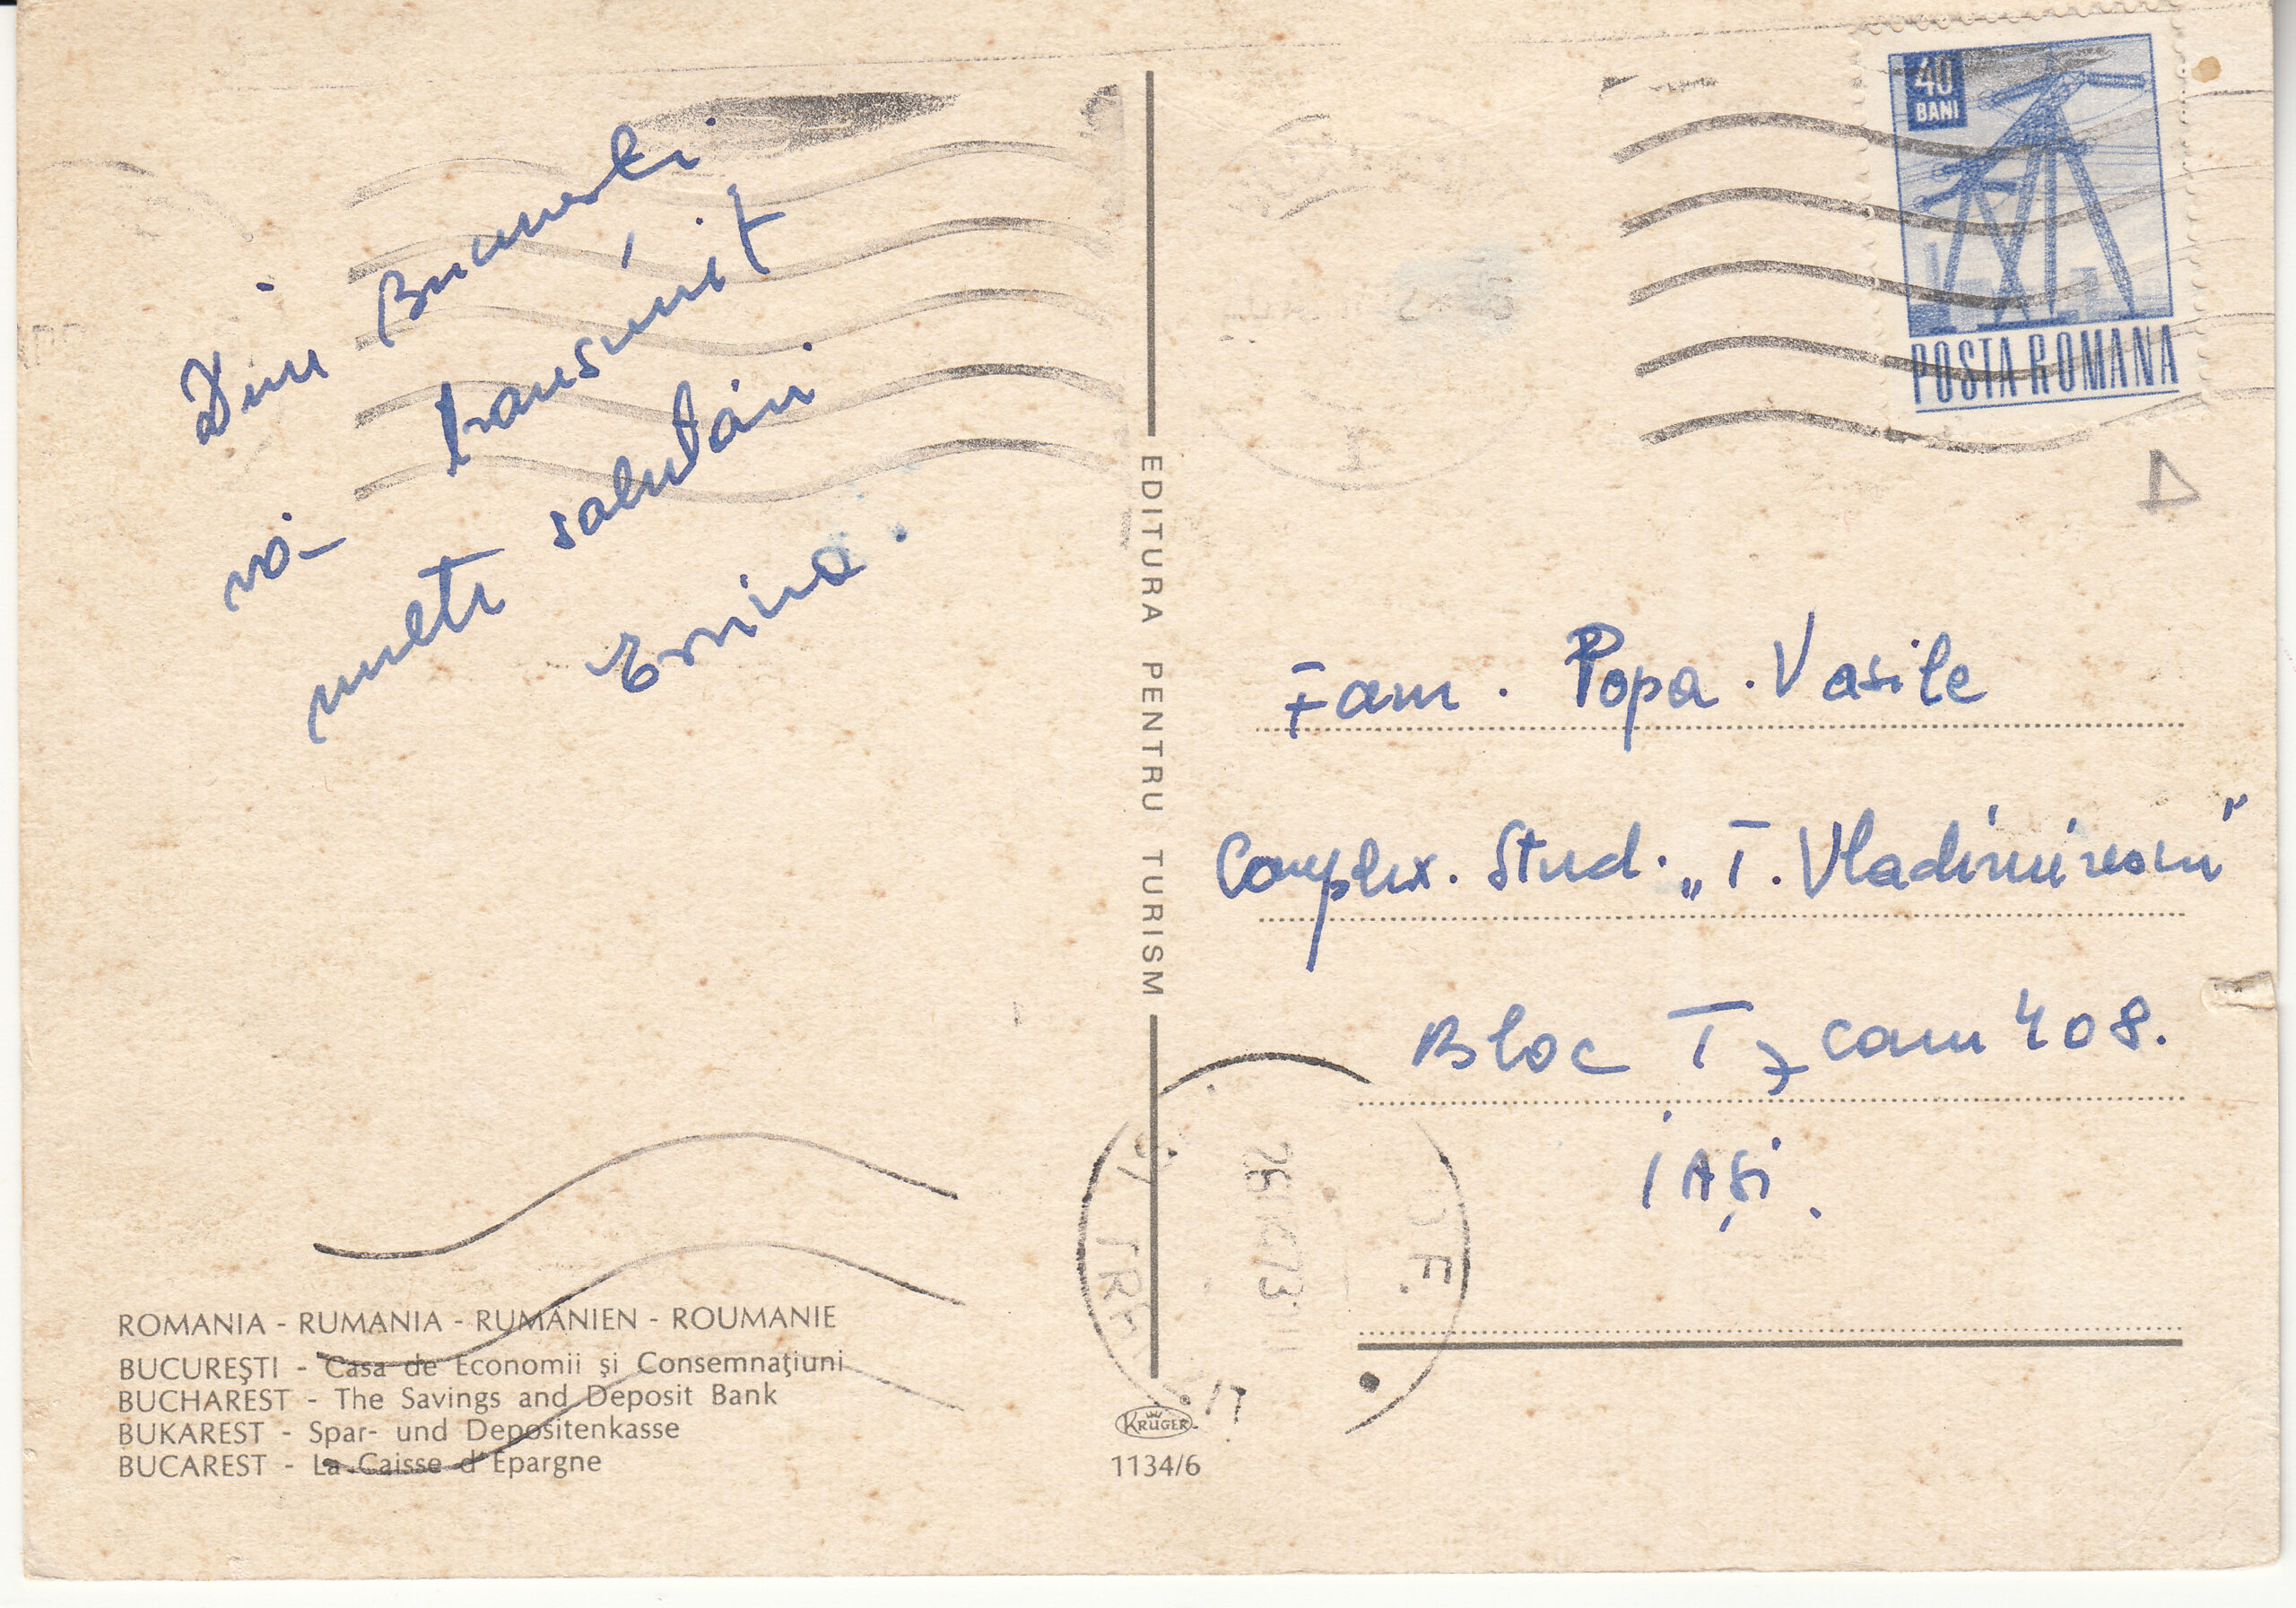 Din București
vă transmit
multe salutări
Ersina.
EDITURA PENTRU TURISM
40
BANI
POSTA ROMANA
Fam. Popa. Vasile
Complex. Stud. „T. Vladimirescu"
Bloc T 7 cam 408.
IAȘI.
ROMANIA - RUMANIA - RUMÄNIEN - ROUMANIE
BUCUREŞTI - Casa de Economii şi Consemnaţiuni
BUCHAREST - The Savings and Deposit Bank
BUKAREST - Spar- und Depositenkasse
BUCAREST - La Caisse d'Epargne
KRÜGER
1134/6